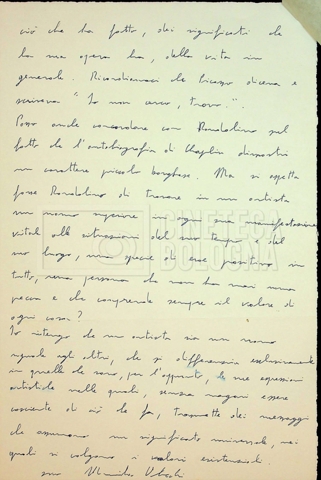 ciò che ha fatto, dei significati che
la sua opera ha, della vita in
generale. Ricordiamoci che Picasso diceva e
scriveva "Io non cerco, trovo".
Posso anche concordare con Rondolino sul
fatto che l'autobiografia di Chaplin dimostri
un carattere piccolo borghese. Ma si aspetta
forse Rondolino di trovare in un artista
un uomo superiore in ogni sua manifestazione
vitale alle situazioni del suo tempo e del
suo luogo, una specie di eroe positivo in
tutto, una persona che non ha mai una
pecca e che comprende sempre il valore di
ogni cosa?
Io ritengo che un artista sia un uomo
uguale agli altri, che si differenzia esclusivamente
in quelle che sono, per l'appunto, le sue espressioni
artistiche nelle quali, senza magari essere
cosciente di ciò che fa, trasmette dei messaggi
che assumono un significato universale, nei
quali si colgono i valori esistenziali.
CINETECA
BOLOGNA